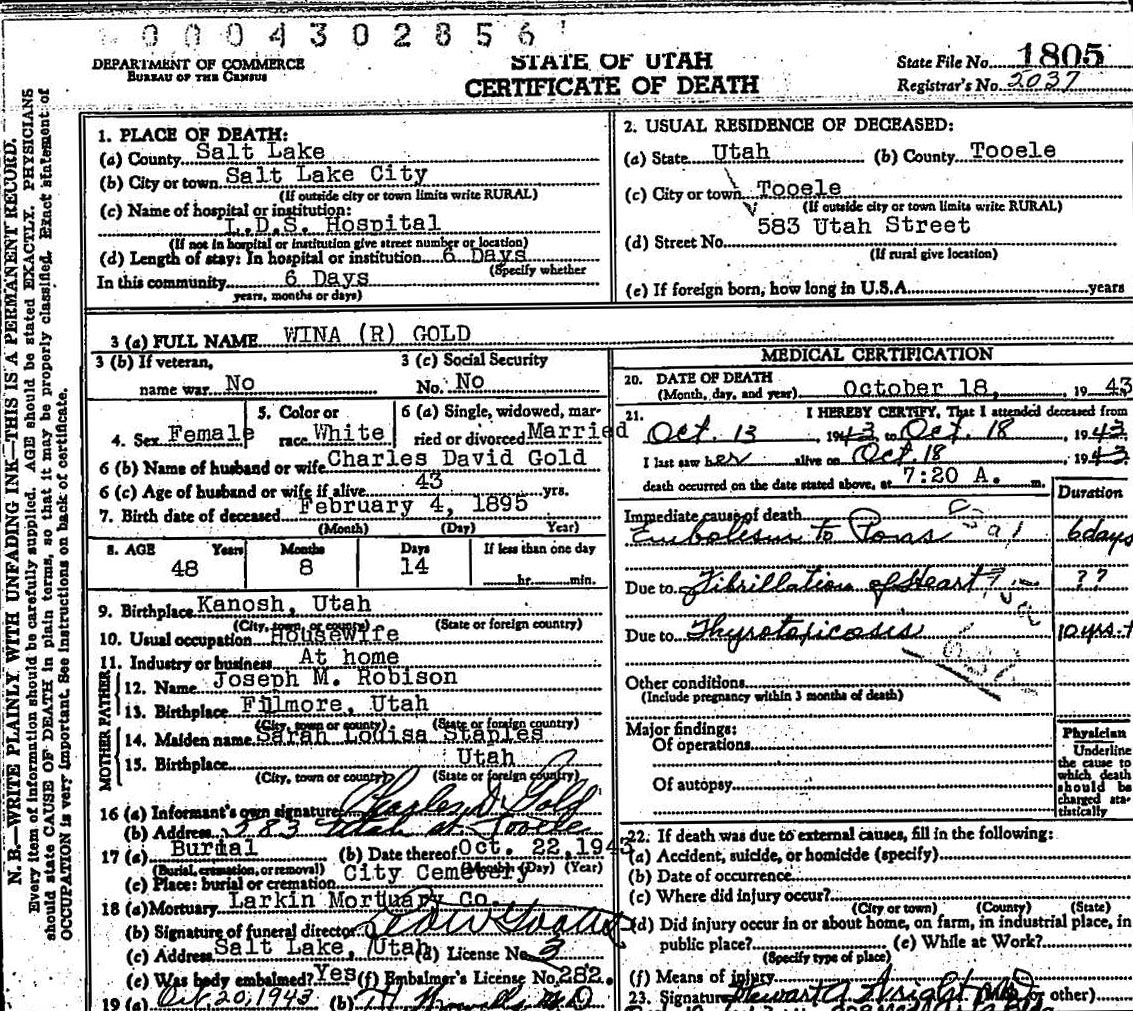 0004302856
DEPARTMENT OF COMMERCE
BUREAU OF THE CENSUS
STATE OF UTAH
CERTIFICATE OF DEATH
State File No. 1805
Registrar's No. 2037
N. B.—WRITE PLAINLY WITH UNFADING INK—THIS IS A PERMANENT RECORD.
Every item of information should be carefully supplied. AGE should be stated EXACTLY. PHYSICIANS
should state CAUSE OF DEATH in plain terms, so that it may be properly classified. Exact statement of
OCCUPATION is very important. See instructions on back of certificate.
1. PLACE OF DEATH:
(a) County Salt Lake
(b) City or town Salt Lake City
(If outside city or town limits write RURAL)
(c) Name of hospital or institution:
L.D.S. Hospital
(If not in hospital or institution give street number or location)
(d) Length of stay: In hospital or institution 6 Days
(Specify whether
In this community 6 Days
years, months or days)
2. USUAL RESIDENCE OF DECEASED:
(a) State Utah (b) County Tooele
(c) City or town Tooele
(If outside city or town limits write RURAL)
583 Utah Street
(d) Street No.
(If rural give location)
(e) If foreign born, how long in U.S.A. years
3 (a) FULL NAME WINA (R) GOLD
3 (b) If veteran, 3 (c) Social Security
name war No No. No
4. Sex Female 5. Color or race White 6 (a) Single, widowed, married or divorced Married
6 (b) Name of husband or wife Charles David Gold
6 (c) Age of husband or wife if alive 43 yrs.
7. Birth date of deceased February 4, 1895
(Month) (Day) Year)
8. AGE Years Months Days If less than one day
48 8 14 hr. min.
9. Birthplace Kanosh, Utah
(City, town, or county) (State or foreign country)
10. Usual occupation Housewife
11. Industry or business At home
FATHER
12. Name Joseph M. Robison
13. Birthplace Fillmore, Utah
(City, town or county) (State or foreign country)
MOTHER
14. Maiden name Sarah Louisa Staples
15. Birthplace Utah
(City, town or county) (State or foreign country)
16 (a) Informant's own signature Charles D. Gold
(b) Address 583 Utah st Tooele
17 (a) Burial (b) Date thereof Oct. 22, 1943
(Burial, cremation, or removal) (Month) (Day) (Year)
(c) Place: burial or cremation City Cemetery
18 (a) Mortuary Larkin Mortuary Co.
(b) Signature of funeral director
(c) Address Salt Lake, Utah (d) License No. 3
(e) Was body embalmed? Yes (f) Embalmer's License No. 282.
19 (a) Oct 20, 1943 (b)
MEDICAL CERTIFICATION
20. DATE OF DEATH
(Month, day, and year) October 18, 1943
21. I HEREBY CERTIFY, That I attended deceased from
Oct. 13 1943 to Oct. 18 1943
I last saw her alive on Oct. 18, 1943
death occurred on the date stated above, at 7:20 A. m.
Duration
Immediate cause of death
Embolism to Pons 6 days
Due to Fibrillation of Heart ? ??
Due to Thyrotoxicosis 10 yrs. +
Other conditions
(Include pregnancy within 3 months of death)
Major findings:
Of operations
Of autopsy
Physician
Underline
the cause to
which death
should be
charged sta-
tistically
22. If death was due to external causes, fill in the following:
(a) Accident, suicide, or homicide (specify)
(b) Date of occurrence
(c) Where did injury occur?
(City or town) (County) (State)
(d) Did injury occur in or about home, on farm, in industrial place, in
public place? (e) While at Work?
(Specify type of place)
(f) Means of injury
23. Signature Stewart A. Wright (MD or other)